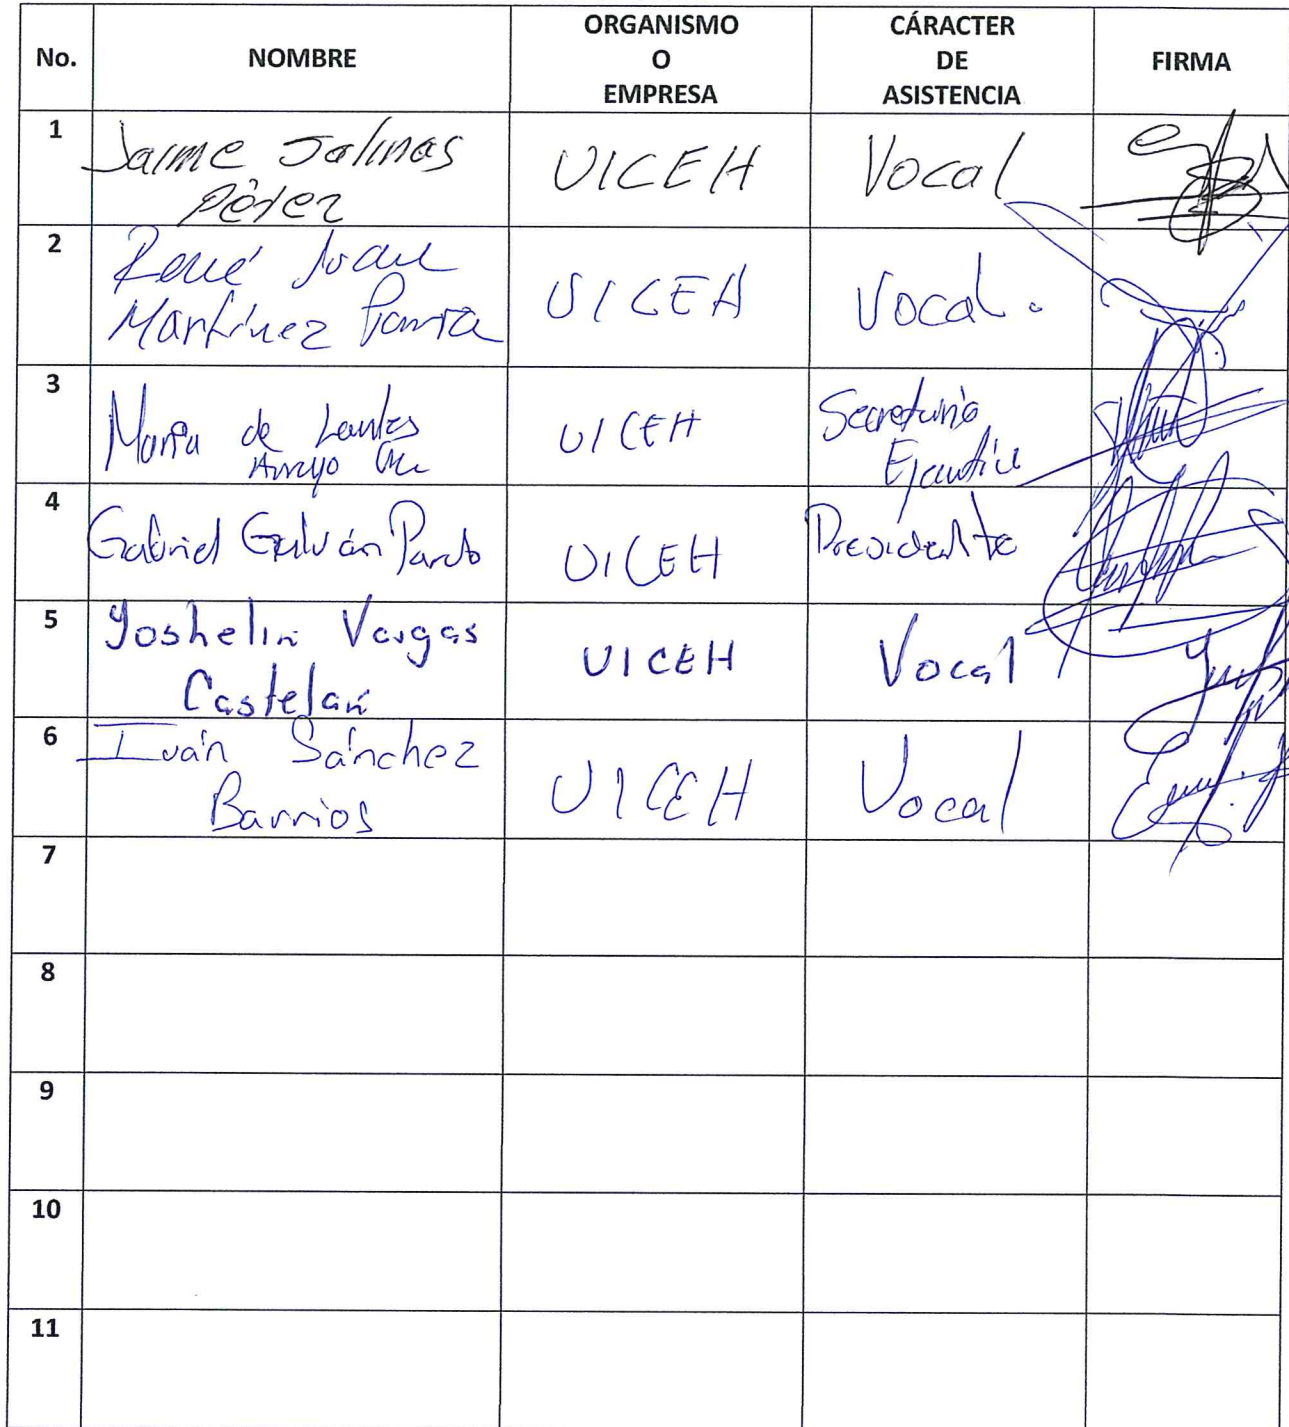 No. NOMBRE ORGANISMO O EMPRESA CÁRACTER DE ASISTENCIA FIRMA
1 Jaime Salinas Pérez UICEH Vocal
2 René Juan Martínez UICEH Vocal.
3 María de Lourdes Arroyo UICEH Secretario Ejecutivo
4 Gabriel Galván Pardo UICEH Presidente
5 Yoshelin Vargas Castelán UICEH Vocal
6 Iván Sánchez Barrios UICEH Vocal
7
8
9
10
11